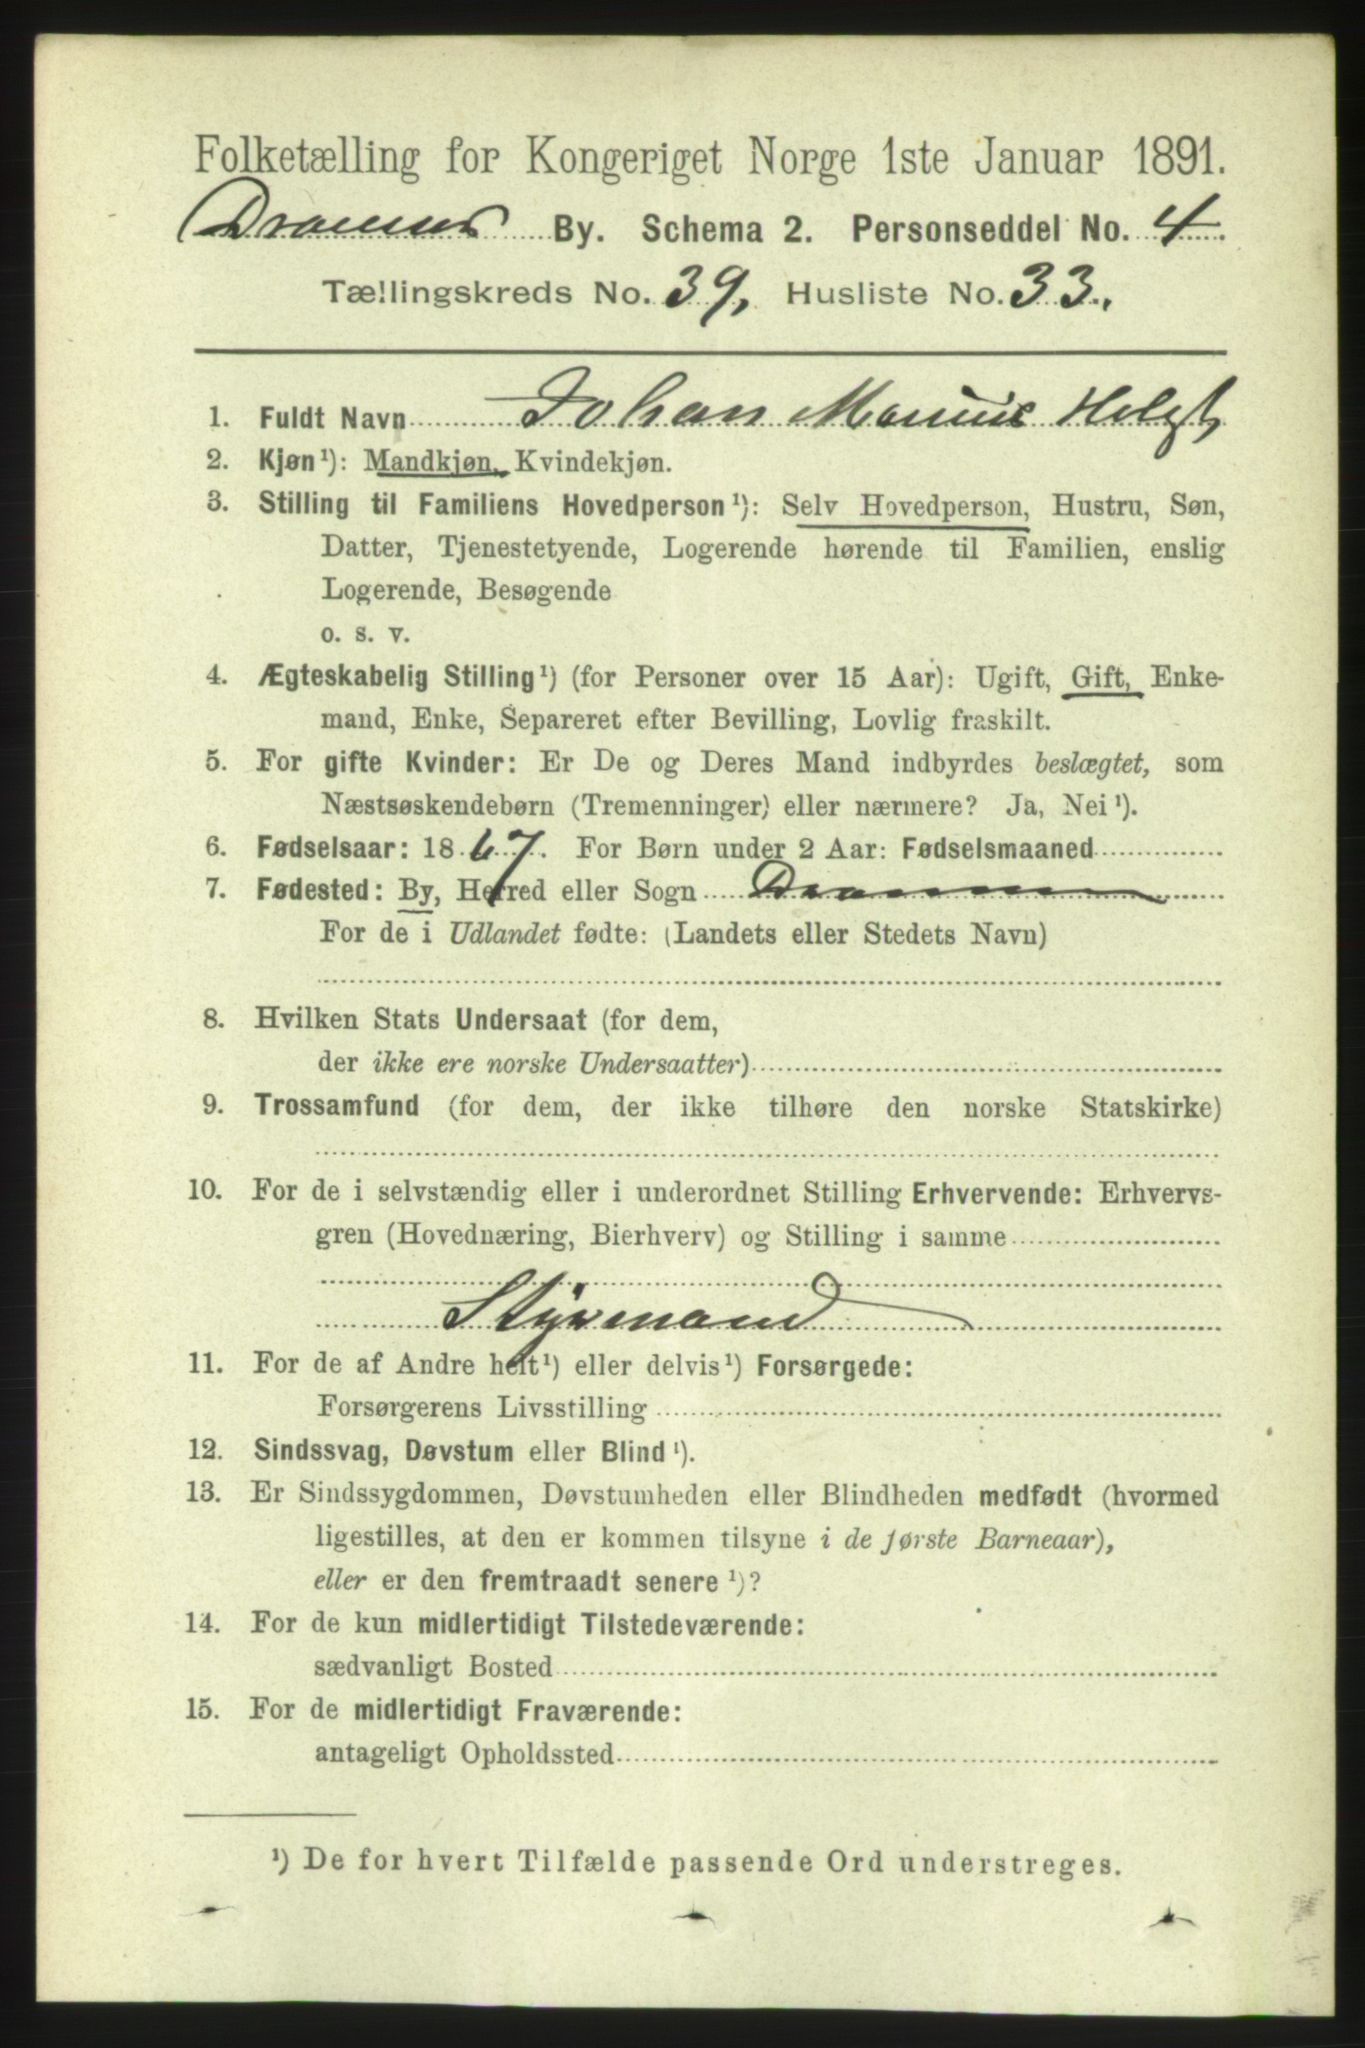 Folketælling for Kongeriget Norge 1ste Januar 1891.
Drammen By. Schema 2. Personseddel No. 4
Tællingskreds No. 39, Husliste No. 33.
1. Fuldt Navn Johan Marius Helgt
2. Kjøn¹): Mandkjøn, Kvindekjøn.
3. Stilling til Familiens Hovedperson¹): Selv Hovedperson, Hustru, Søn,
Datter, Tjenestetyende, Logerende hørende til Familien, enslig
Logerende, Besøgende
o. s. v.
4. Ægteskabelig Stilling¹) (for Personer over 15 Aar): Ugift, Gift, Enke-
mand, Enke, Separeret efter Bevilling, Lovlig fraskilt.
5. For gifte Kvinder: Er De og Deres Mand indbyrdes beslægtet, som
Næstsøskendebørn (Tremenninger) eller nærmere? Ja, Nei¹).
6. Fødselsaar: 1867. For Børn under 2 Aar: Fødselsmaaned
7. Fødested: By, Herred eller Sogn Drammen
For de i Udlandet fødte: (Landets eller Stedets Navn)
8. Hvilken Stats Undersaat (for dem,
der ikke ere norske Undersaatter)
9. Trossamfund (for dem, der ikke tilhøre den norske Statskirke)
10. For de i selvstændig eller i underordnet Stilling Erhvervende: Erhvervs-
gren (Hovednæring, Bierhverv) og Stilling i samme
Styrmand
11. For de af Andre helt¹) eller delvis¹) Forsørgede:
Forsørgerens Livsstilling
12. Sindssvag, Døvstum eller Blind¹).
13. Er Sindssygdommen, Døvstumheden eller Blindheden medfødt (hvormed
ligestilles, at den er kommen tilsyne i de første Barneaar),
eller er den fremtraadt senere¹)?
14. For de kun midlertidigt Tilstedeværende:
sædvanligt Bosted
15. For de midlertidigt Fraværende:
antageligt Opholdssted
¹) De for hvert Tilfælde passende Ord understreges.